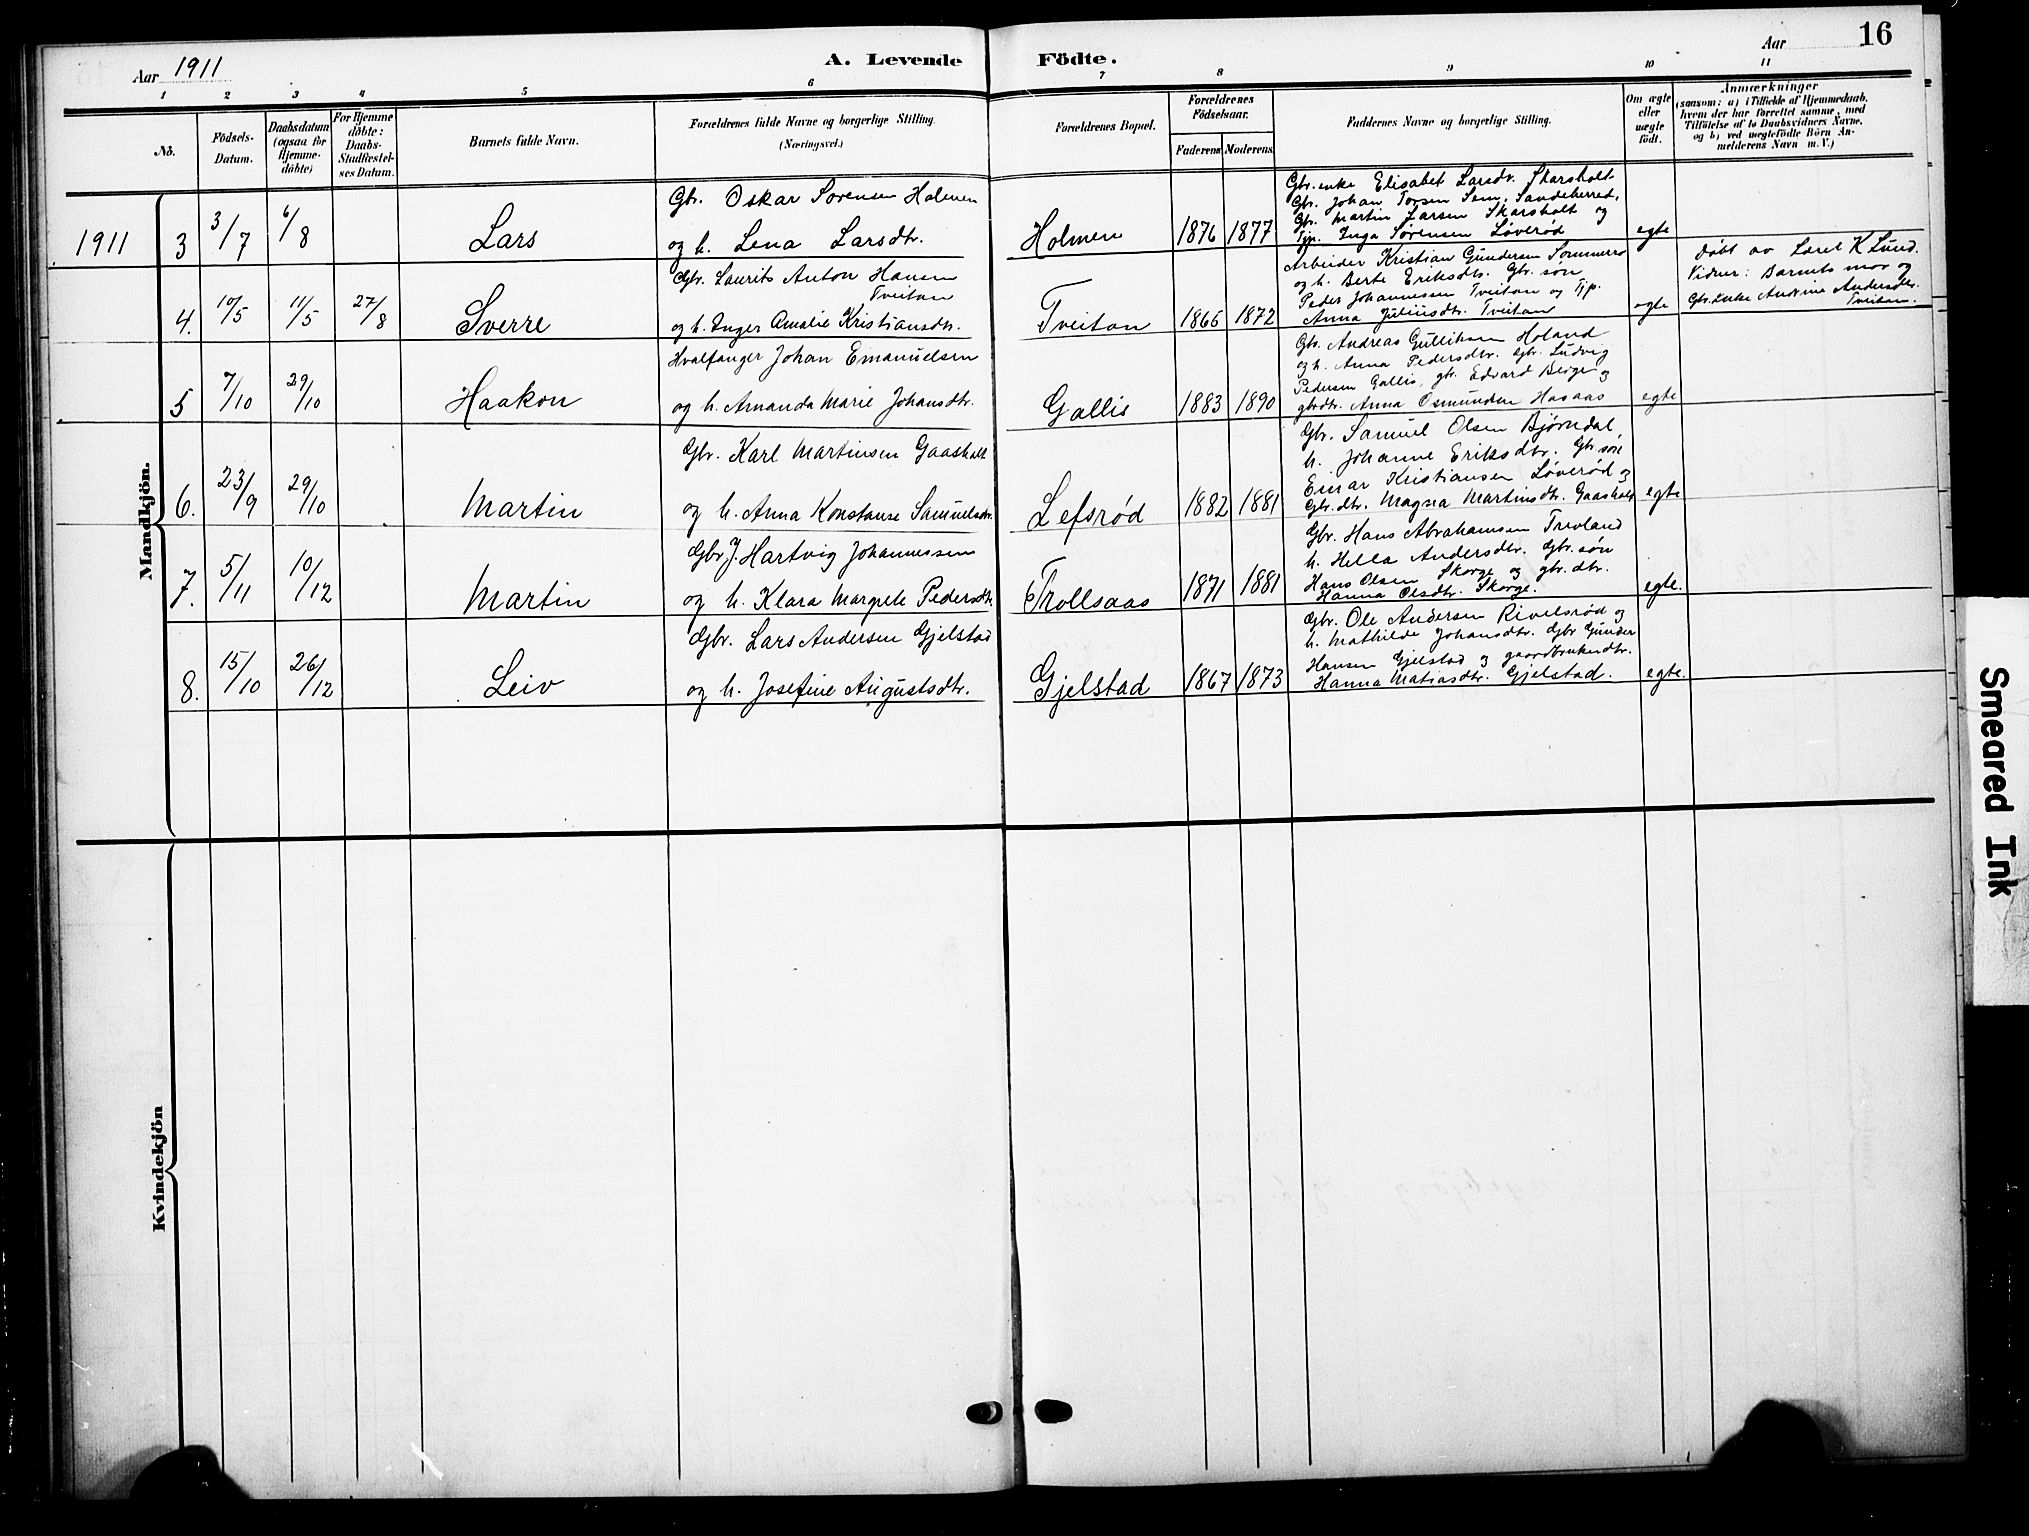 16
Aar 1911
A. Levende Födte.
Aar
1 2 3 4 5 6 7 8 9 10 11
No.
Födsels-Datum.
Daabsdatum (ogsaa for Hjemme-döbte)
For Hjemme döbte: Daabs-Stadfæstel-ses Datum.
Barnets fulde Navn.
Forældrenes fulde Navne og borgerlige Stilling.
(Næringsvei.)
Forældrenes Bopæl.
Forældrenes Födselsaar.
Faderens Moderens
Faddernes Navne og borgerlige Stilling.
Om ægte eller uægte födt.
Anmærkninger
(saasom: a) i Tilfælde af Hjemmedaab, hvem der har forrettet samme, med Tilföielse af to Daabsvidners Navne, og b) ved uægtefödte Börn An-melderens Navn m. V.)
Mandkjön.
1911 3 3/7 6/8 Lars
Gbr. Oskar Sørensen Holmen
og h. Lena Larsdtr.
Holmen 1876 1877
Gbr. enke Elisabet Larsdtr. Skarsholt
Gbr. Johan Torsen Sem, Sandeherred,
Gbr. Martin Larsen Skarsholt og
Tjp. Inga Sørensen Løverød
egte
4. 10/5 11/5 27/8 Sverre
Gbr. Laurits Anton Hansen
Tveitan
og h. Inger Amalie Kristiansdtr.
Tveitan 1866 1872
Arbeider Kristian Gundersen Sommerro
og h. Berte Eriksdtr. Gbr. søn
Peder Johannessen Tveitan og Tjp.
Anna Juliusdtr. Tveitan
egte
Døbt av Lærel K Lund.
Vidner: Barnets mor og
Gbr. Enke Andrine Andersdtr.
Tveitan.
5 7/10 29/10 Haakon
Hvalfanger Johan Emanuelsen
og h. Amanda Marie Johansdtr.
Gallis 1883 1890
Gbr. Andreas Gulliksen Holand
og h. Anna Pedersdtr. Gbr. Ludvig
Pedersen Gallis, gbr. Edvard Berge og
gbrdtr. Anna Osmundsen Hasaas
egte
6. 23/9 29/10 Martin
Gbr. Karl Martinsen Gaasholt
og h. Anna Konstanse Samuelsdtr.
Lefsrød 1882 1881
Gbr. Samuel Olsen Bjørndal
h. Johanne Eriksdtr. Gbr søn
Einar Kristiansen Løverød og
Gbr. dtr. Magna Martinsdtr. Gaasholt
egte
7. 5/11 10/12 Martin
Gbr J. Hartvig Johannessen
og h. Klara Margrete Pedersdtr.
Trollsaas 1871 1881
Gbr. Hans Abrahamsen Trevland
h. Hella Andersdtr. Gbr. søn
Hans Olsen Skorge og gbr. dtr.
Hanna Olsdtr. Skorge.
egte.
8. 15/10 26/12 Leiv
Gbr. Lars Andersen Gjelstad
og h. Josefine Augustsdtr.
Gjelstad 1867 1873
Gbr. Ole Andersen Rivelsrød og
h. Mathilde Johansdtr. Gbr Gunder
Hansen Gjelstad og gaardbrukerdtr.
Hanna Matiasdtr. Gjelstad.
egte.
Kvindekjön
Smeared Ink